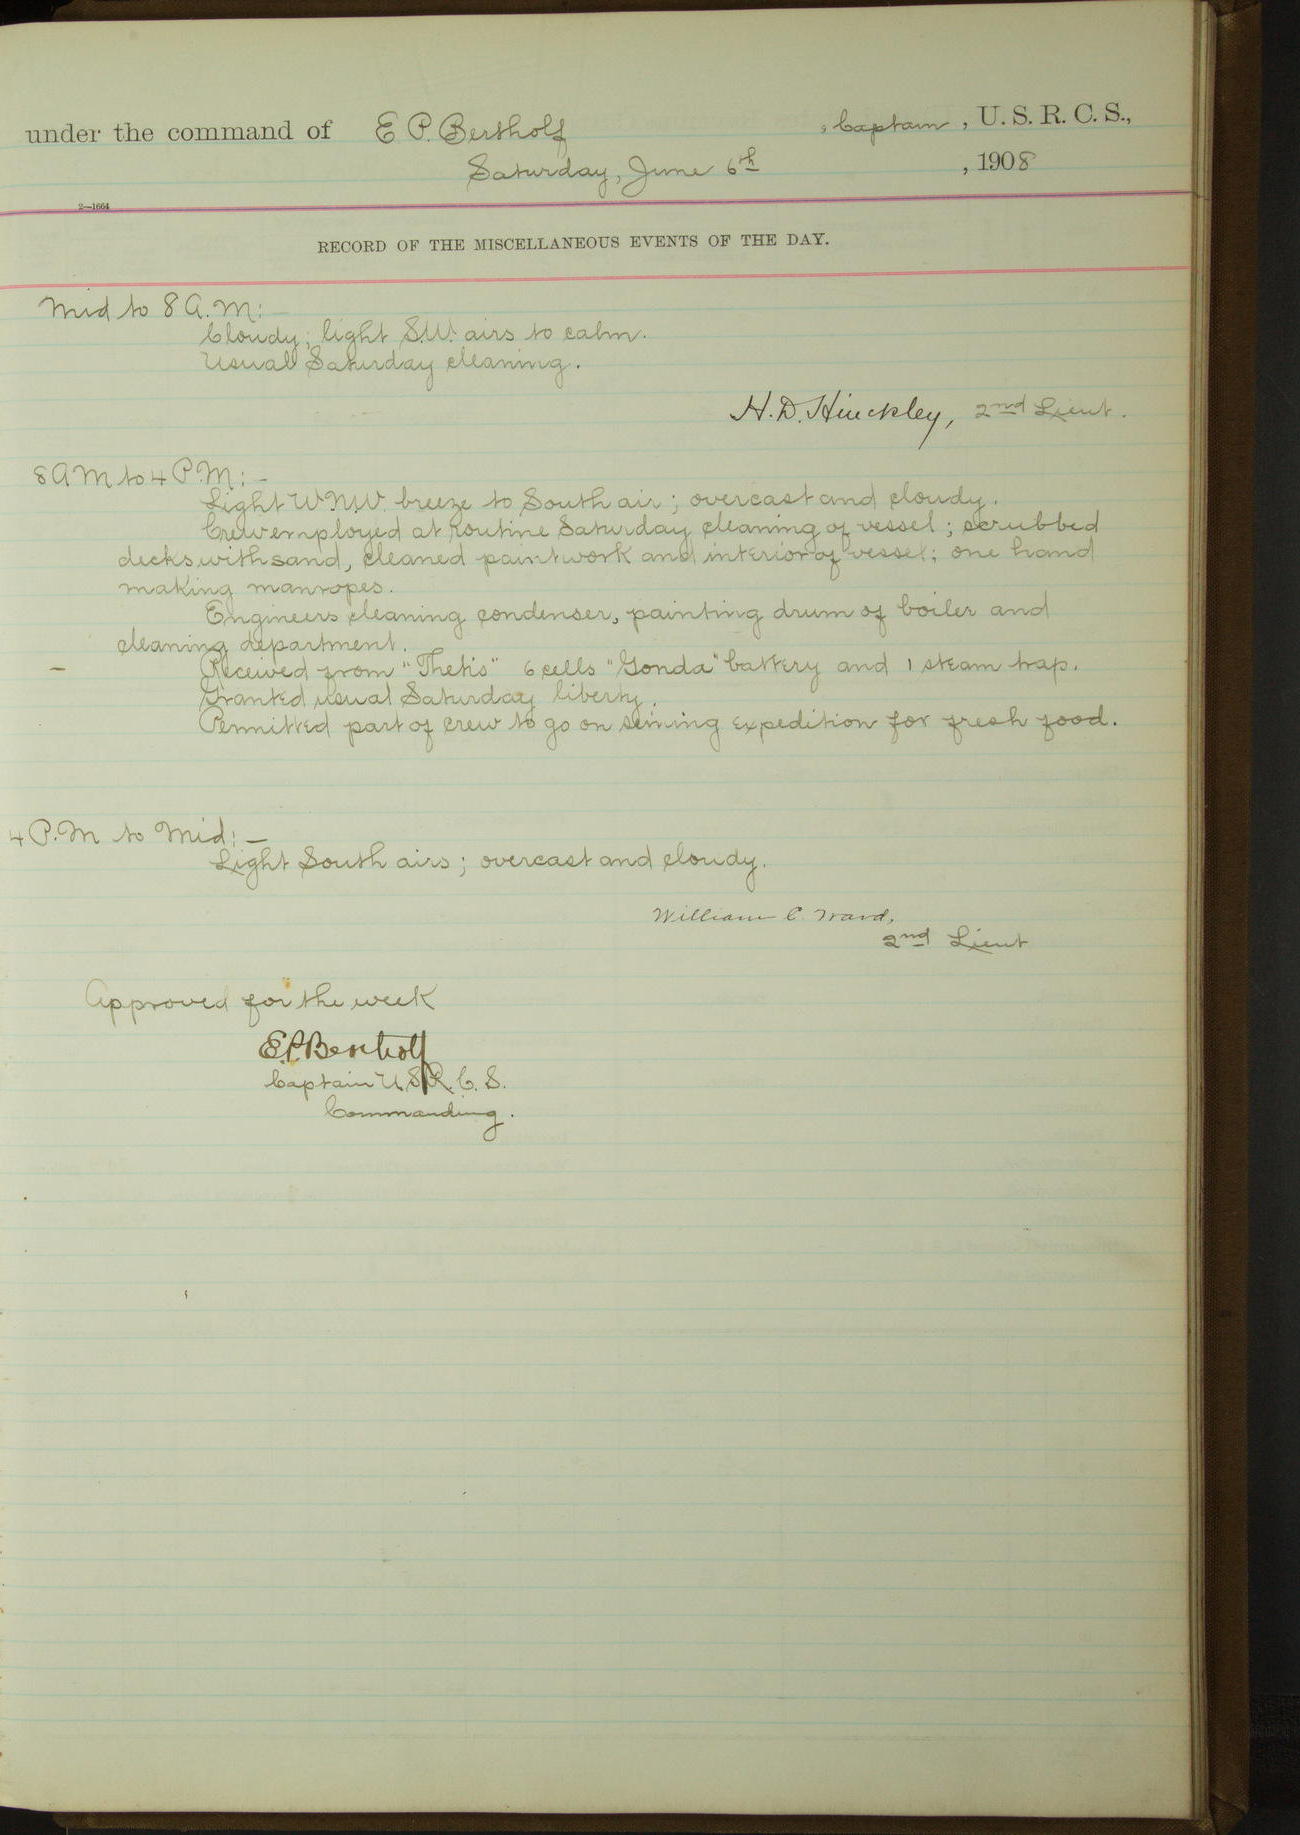 under the command of E P. Bertholf, Captain, U. S. R. C. S.,
Saturday, June 6th, 1908
2—1664
RECORD OF THE MISCELLANEOUS EVENTS OF THE DAY.
Mid to 8 A.M:—
Cloudy; light S.W. airs to calm.
Usual Saturday cleaning.
H. D. Hinckley, 2nd Lieut.
8 A M to 4 P.M:—
Light W.N.W. breeze to South air; overcast and cloudy.
Crew employed at routine Saturday cleaning of vessel; scrubbed
decks with sand, cleaned paintwork and interior of vessel; one hand
making manropes.
Engineers cleaning condenser, painting drum of boiler and
cleaning department.
— Received from "Thetis" 6 cells "Gonda" battery and 1 steam trap.
Granted usual Saturday liberty.
Permitted part of crew to go on seining expedition for fresh food.
4 P.M to Mid:—
Light South airs; overcast and cloudy.
William C. Ward,
2nd Lieut
Approved for the week
E.P. Bertholf
Captain U.S.R.C.S.
Commanding.